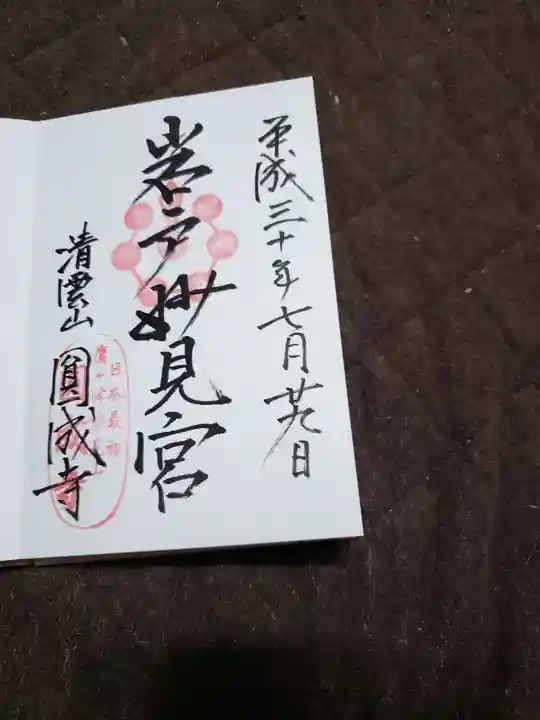 平成三十年七月廿九日
岩戸妙見宮
清雲山
圓成寺
日本最初